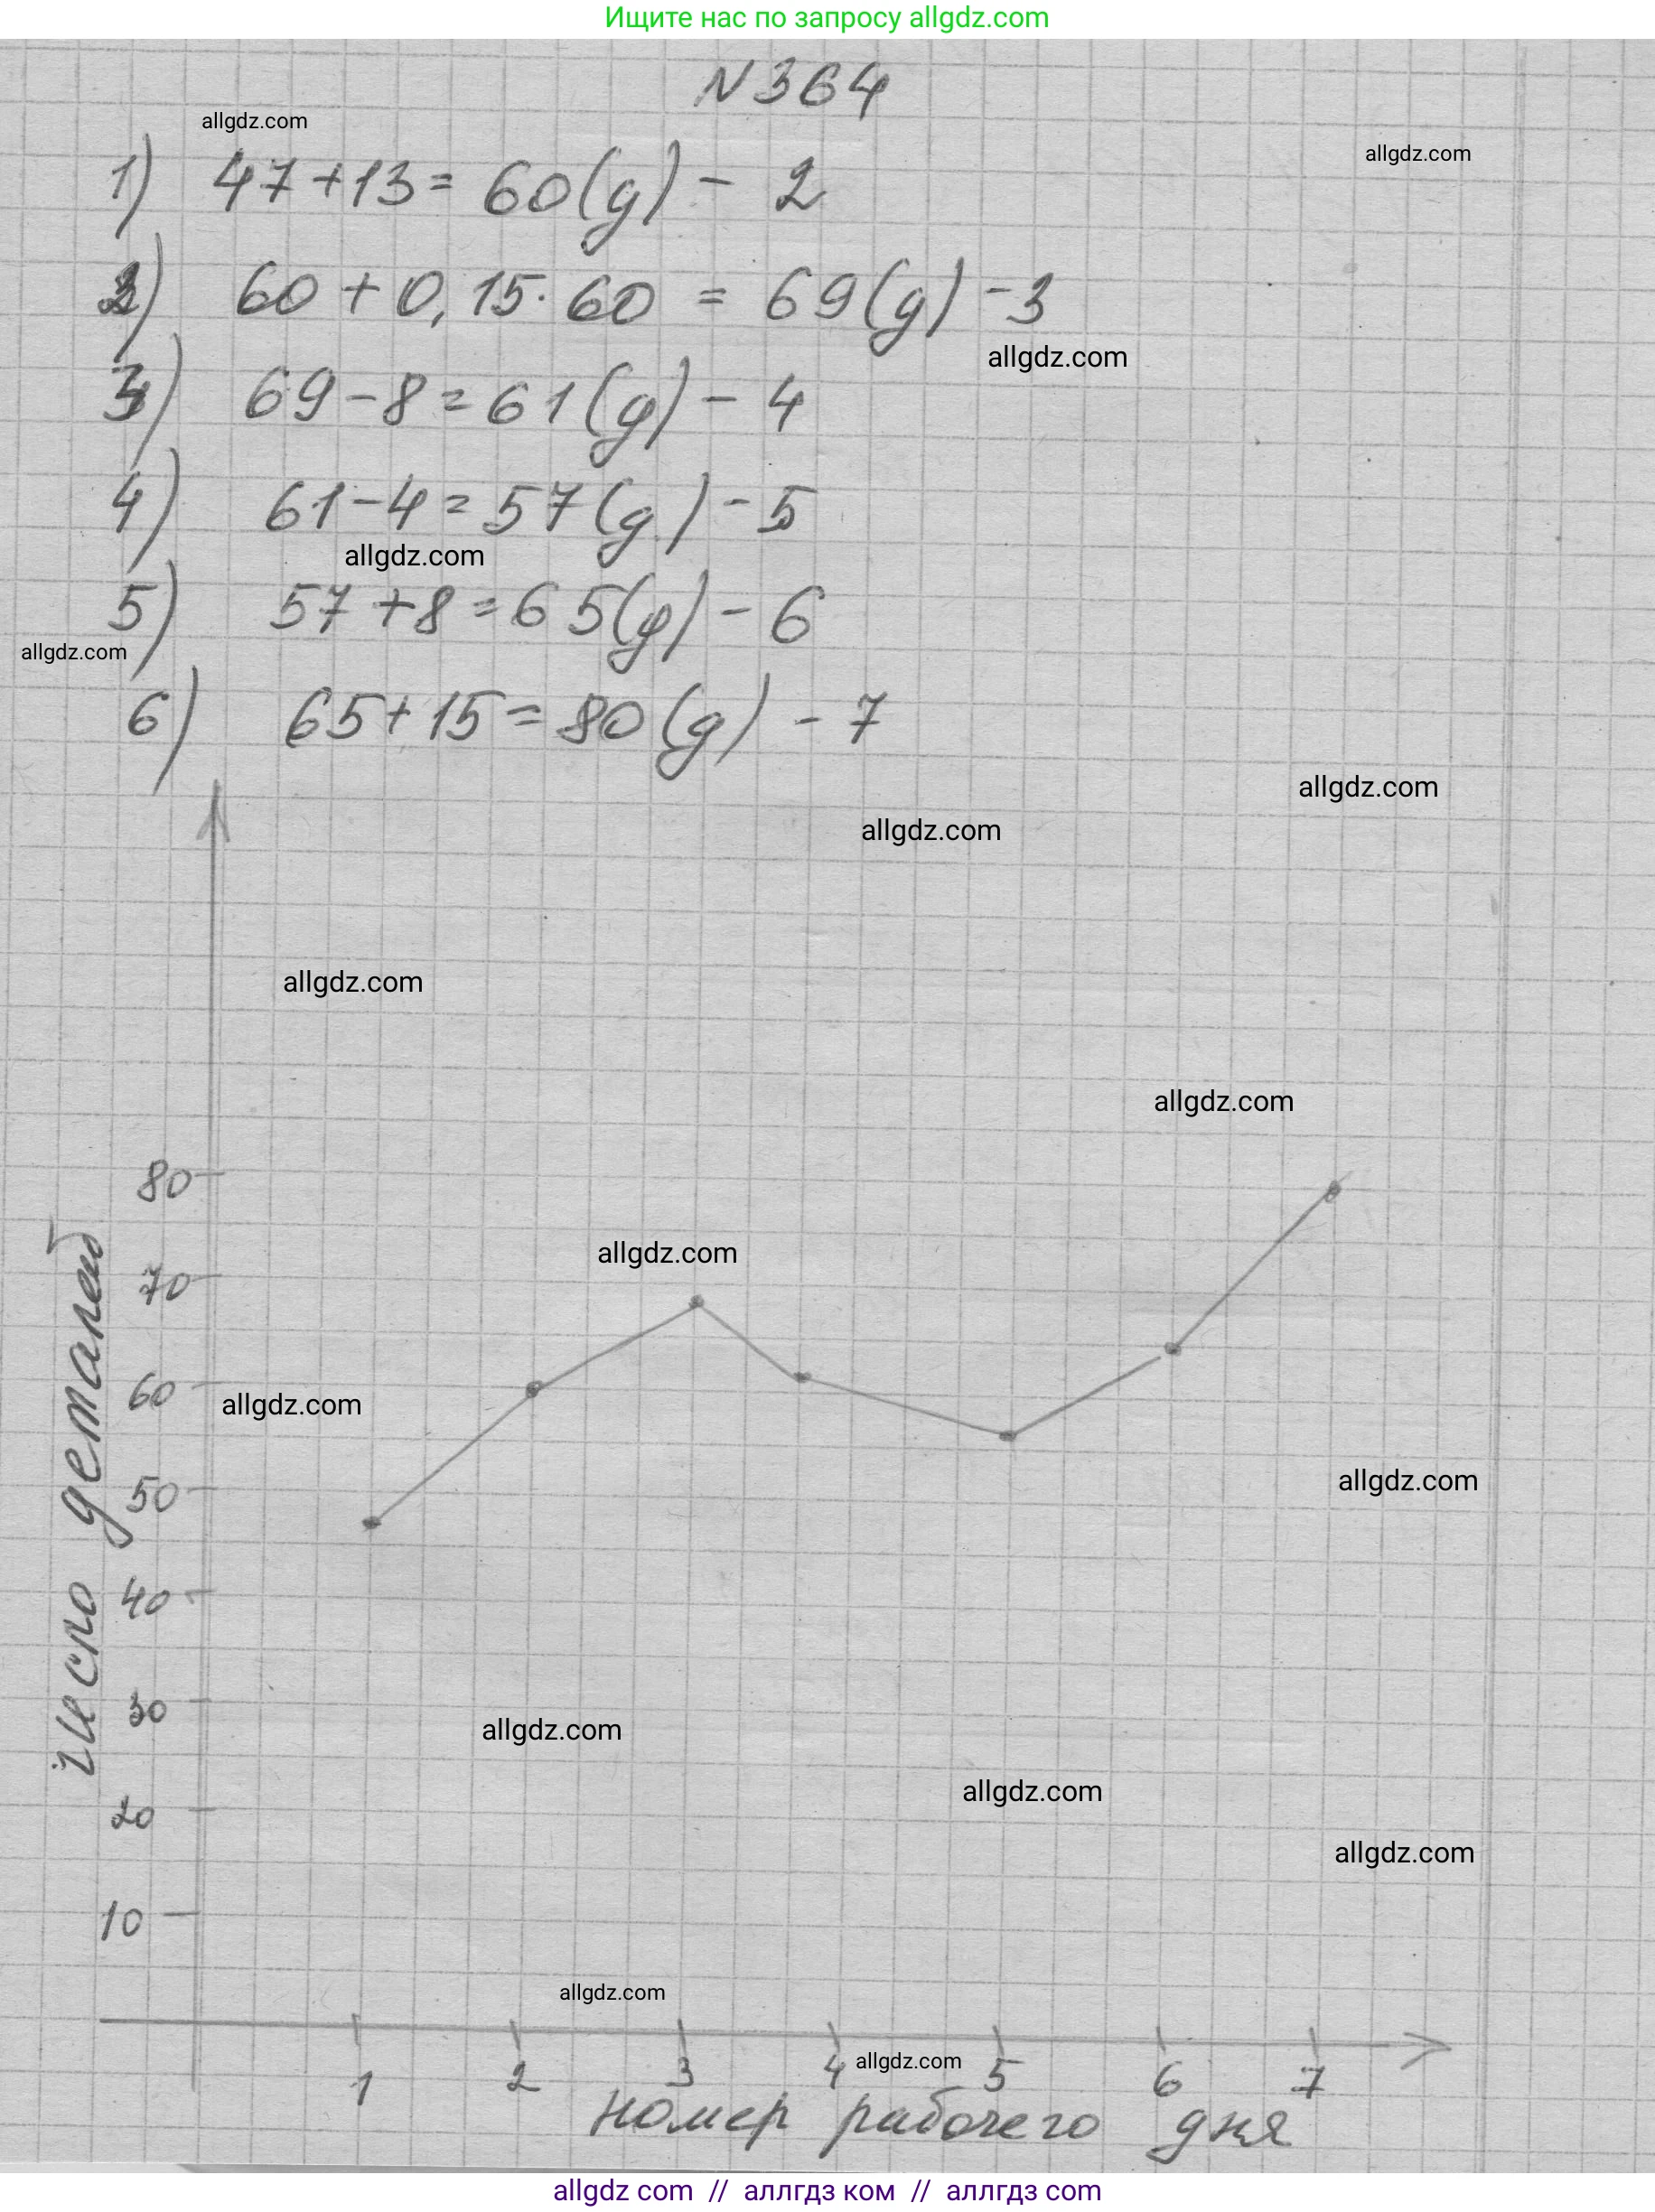 Ищите нас по запросу allgdz.com
N 364
allgdz.com
allgdz.com
1) 47+13= 60(д) - 2
2) 60+0,15·60 = 69(д) -3
allgdz.com
3) 69-8=61(д) - 4
4) 61-4=57(д) -5
allgdz.com
5) 57+8=65(д) - 6
allgdz.com
6) 65+15=80(д) - 7
allgdz.com
allgdz.com
allgdz.com
allgdz.com
80
allgdz.com
70
60
allgdz.com
allgdz.com
50
40
30
allgdz.com
allgdz.com
20
allgdz.com
10
число деталей
allgdz.com
1 2 3 4 5 6 7
allgdz.com
номер рабочего дня
allgdz com // аллгдз ком // аллгдз com